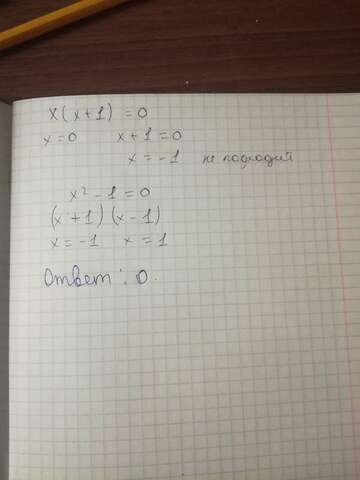 x(x+1)=0
x=0 x+1=0
x=-1 не подходит
x²-1=0
(x+1)(x-1)
x=-1 x=1
Ответ: 0.